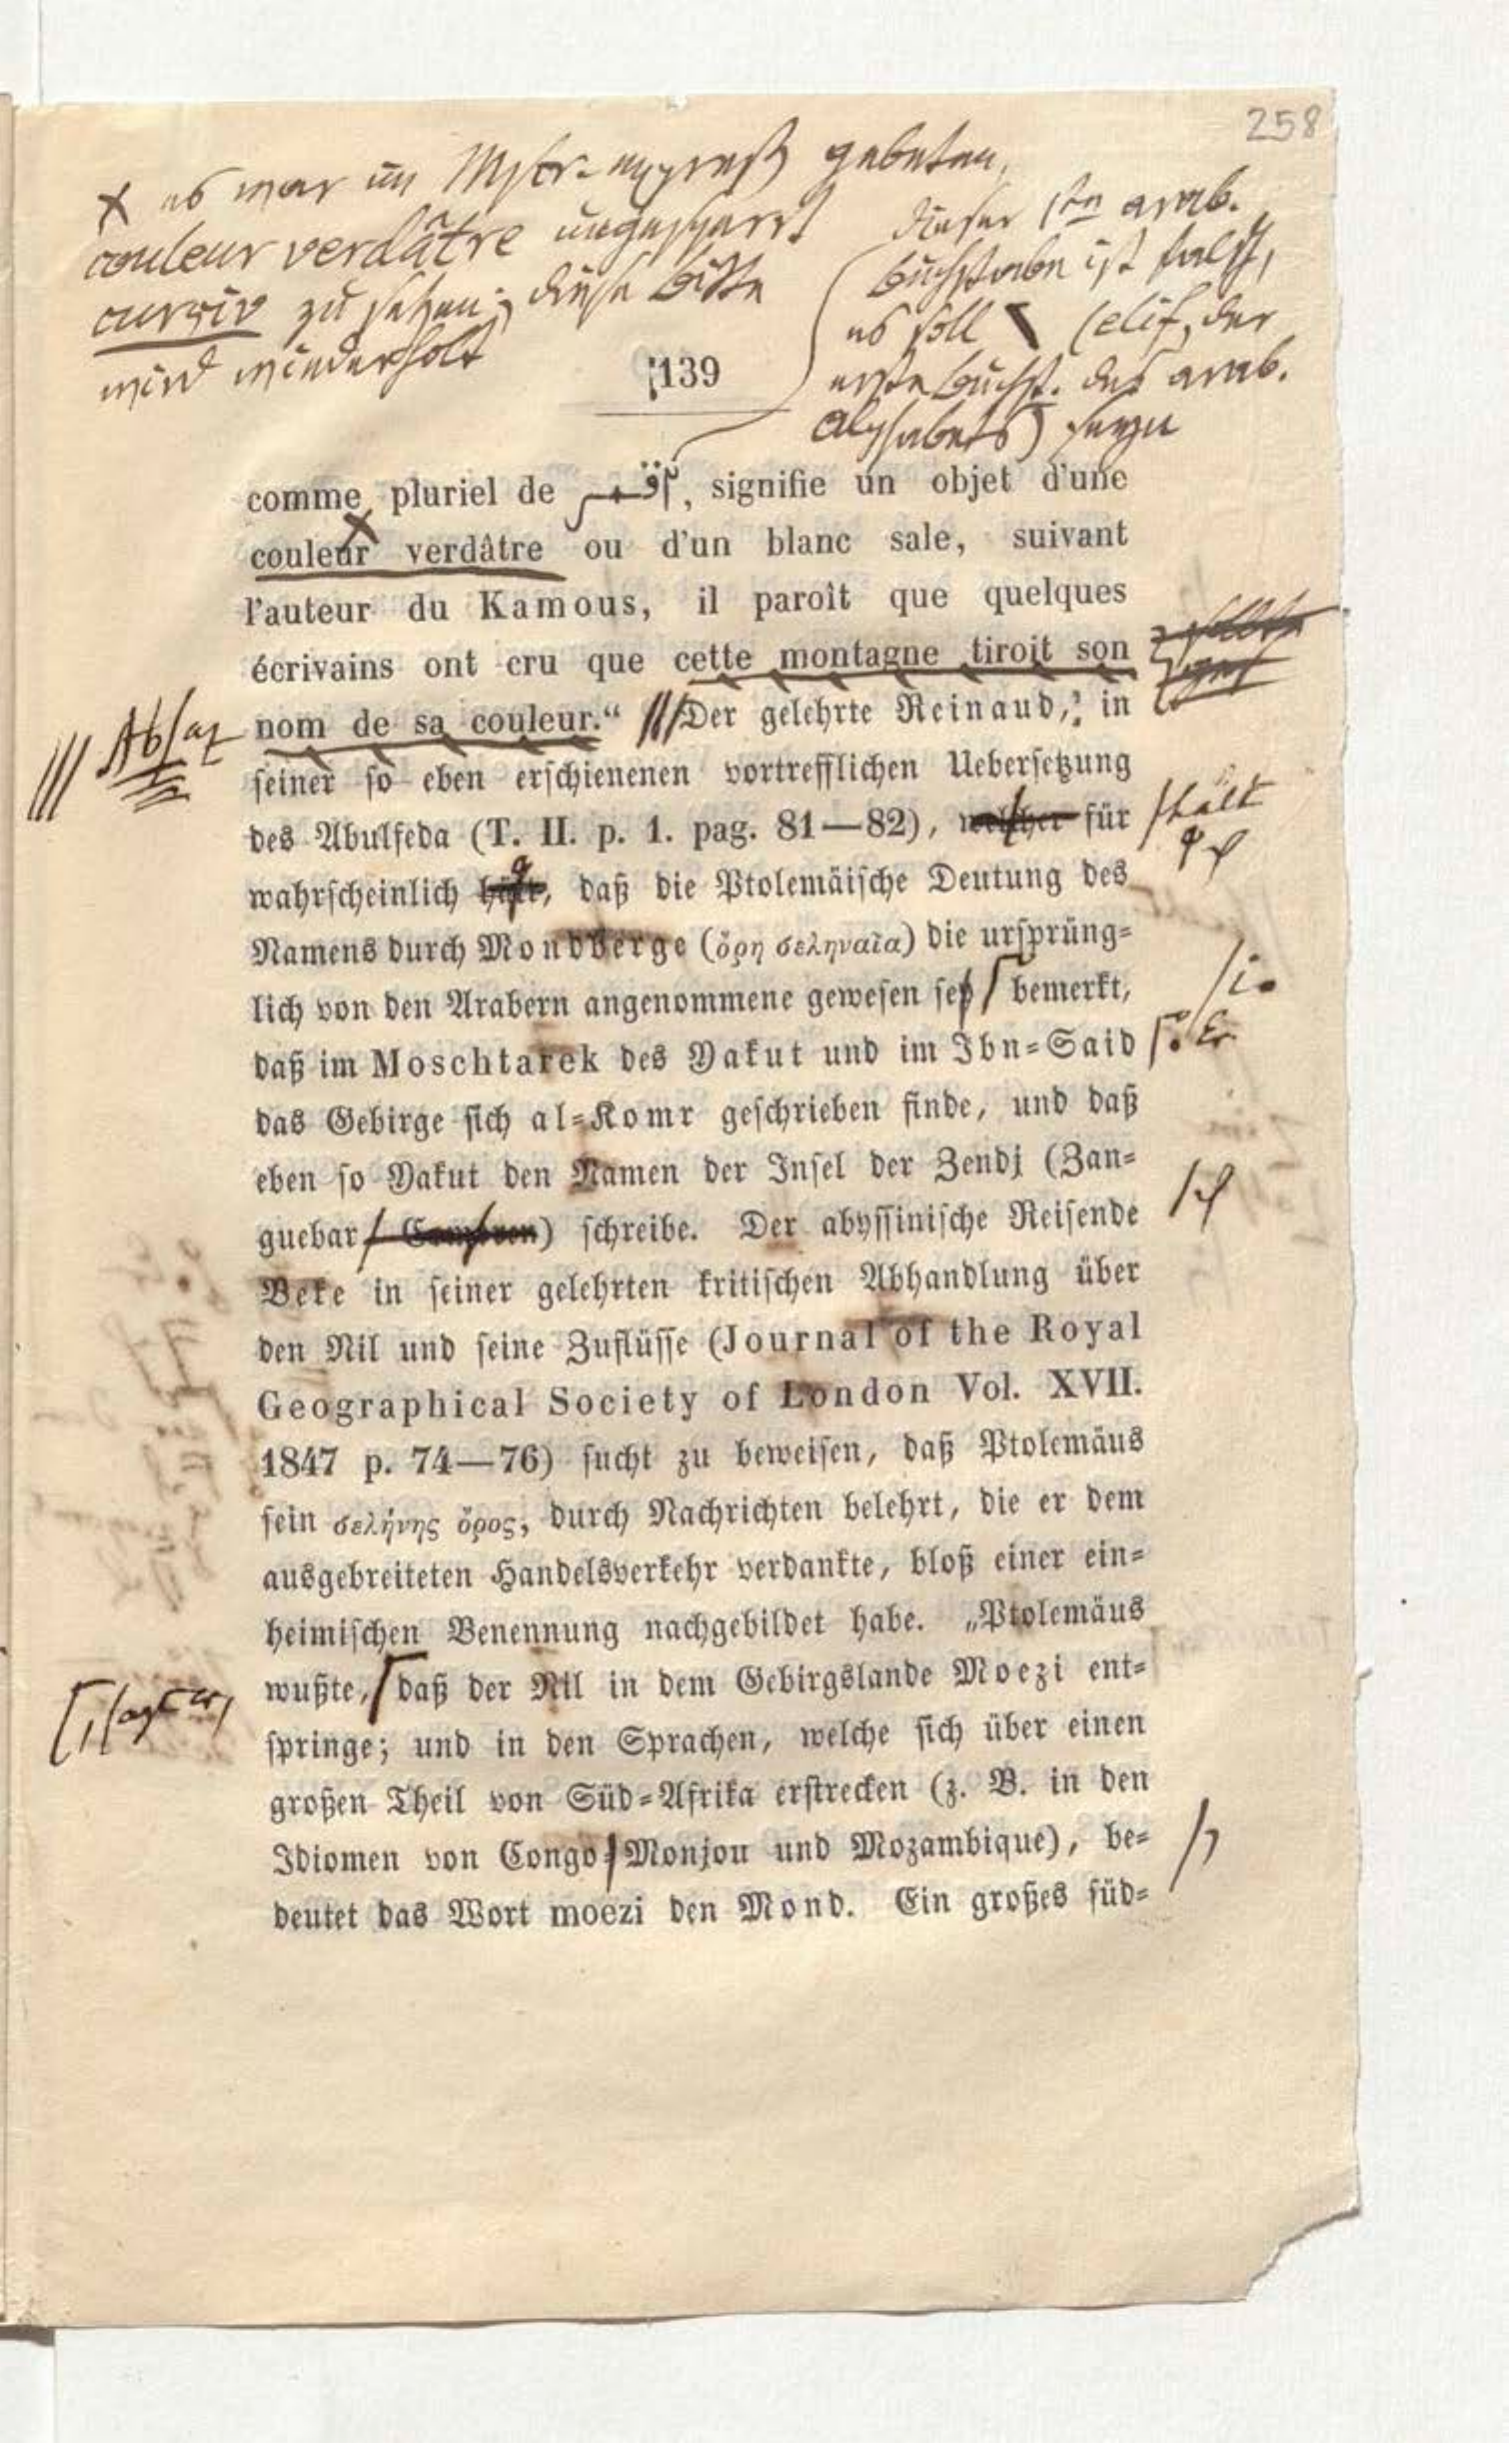 258
× es war im Mscr. expreß gebeten,
couleur verdâtre ungesperrt
cursiv zu setzen; diese Bitte
wird wiederholt
dieser 1te arab.
Buchstabe ist falsch,
es soll \ (elif, der
erste Buchst. des arab.
Alphabets) seyn
139
comme pluriel de , signifie un objet d'une
couleur verdâtre ou d'un blanc sale, suivant
l'auteur du Kamous, il paroît que quelques
écrivains ont cru que cette montagne tiroit son
nom de sa couleur.“ Der gelehrte Reinaud, in
||| Absaz
seiner so eben erschienenen vortrefflichen Uebersetzung
des Abulfeda (T. II. p. 1. pag. 81—82), welcher für
hält
wahrscheinlich hält, daß die Ptolemäische Deutung des
Namens durch Mondberge (ὄρη σεληναῖα) die ursprüng-
lich von den Arabern angenommene gewesen sey bemerkt,
i.
daß im Moschtarek des Yakut und im Ibn-Said
Er
das Gebirge sich al-Komr geschrieben finde, und daß
eben so Yakut den Namen der Insel der Zendj (Zan-
guebar Comoren) schreibe. Der abyssinische Reisende
Beke in seiner gelehrten kritischen Abhandlung über
den Nil und seine Zuflüsse (Journal of the Royal
Geographical Society of London Vol. XVII.
1847 p. 74—76) sucht zu beweisen, daß Ptolemäus
sein σελήνης ὄρος, durch Nachrichten belehrt, die er dem
ausgebreiteten Handelsverkehr verdankte, bloß einer ein-
heimischen Benennung nachgebildet habe. „Ptolemäus
wußte, daß der Nil in dem Gebirgslande Moezi ent-
, sagt er,
springe; und in den Sprachen, welche sich über einen
großen Theil von Süd-Afrika erstrecken (z. B. in den
Idiomen von Congo- Monjou und Mozambique), be-
deutet das Wort moezi den Mond. Ein großes süd-